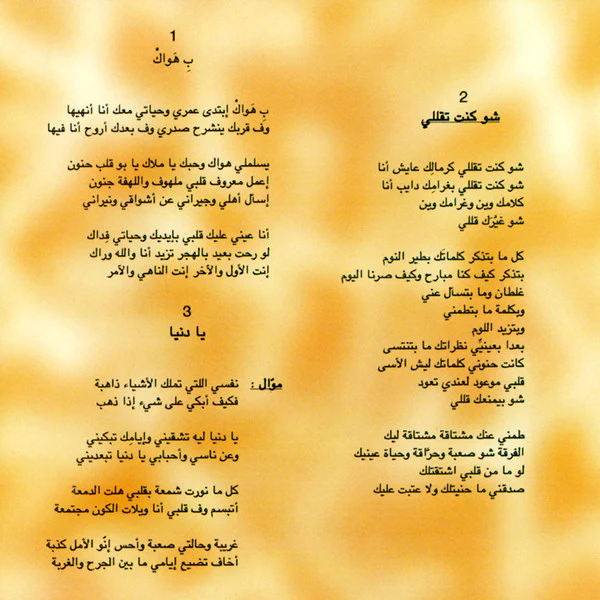 1
بِ هَواكْ
بِ هَواكْ إبتدى عمري وحياتي معك أنا أنهيها
وف قربك ينشرح صدري وف بعدك أروح أنا فيها
يسلملي هواك وحبك يا ملاك يا بو قلب حنون
إعمل معروف قلبي ملهوف واللهفة جنون
إسأل أهلي وجيراني عن أشواقي ونيراني
أنا عيني عليك قلبي بإيديك وحياتي فِداك
لو رحت بعيد بالهجر تزيد أنا والله وراك
إنت الأول والآخر إنت الناهي والآمر
2
شو كنت تقللي
شو كنت تقللي كرمالِك عايش أنا
شو كنت تقللي بغرامِك دايب أنا
كلامك وين وغرامك وين
شو غيّرَك قللي
كل ما بتذكر كلماتَك بطير النوم
بتذكر كيف كنا مبارح وكيف صرنا اليوم
غلطان وما بتسأل عني
وبكلمة ما بتطمني
وبتزيد اللوم
بعدا بعينيِّي نظراتك ما بتنتسى
كانت حنوني كلماتك ليش الأسى
قلبي موعود لعندي تعود
شو بيمنعك قللي
طمني عنك مشتاقة مشتاقة ليك
الفرقة شو صعبة وحرّاقة وحياة عينيك
لو ما من قلبي اشتقتلك
صدقني ما حنيتلك ولا عتبت عليك
3
يا دنيا
موّال : نفسي اللتي تملك الأشياء ذاهبة
فكيف أبكي على شيء إذا ذهب
يا دنيا ليه تشقيني وإيامِك تبكيني
وعن ناسي وأحبابي يا دنيا تبعديني
كل ما نورت شمعة بقلبي هلت الدمعة
أتبسم وف قلبي أنا ويلات الكون مجتمعة
غريبة وحالتي صعبة وأحس إنّو الأمل كذبة
أخاف تضيع إيامي ما بين الجرح والغربة